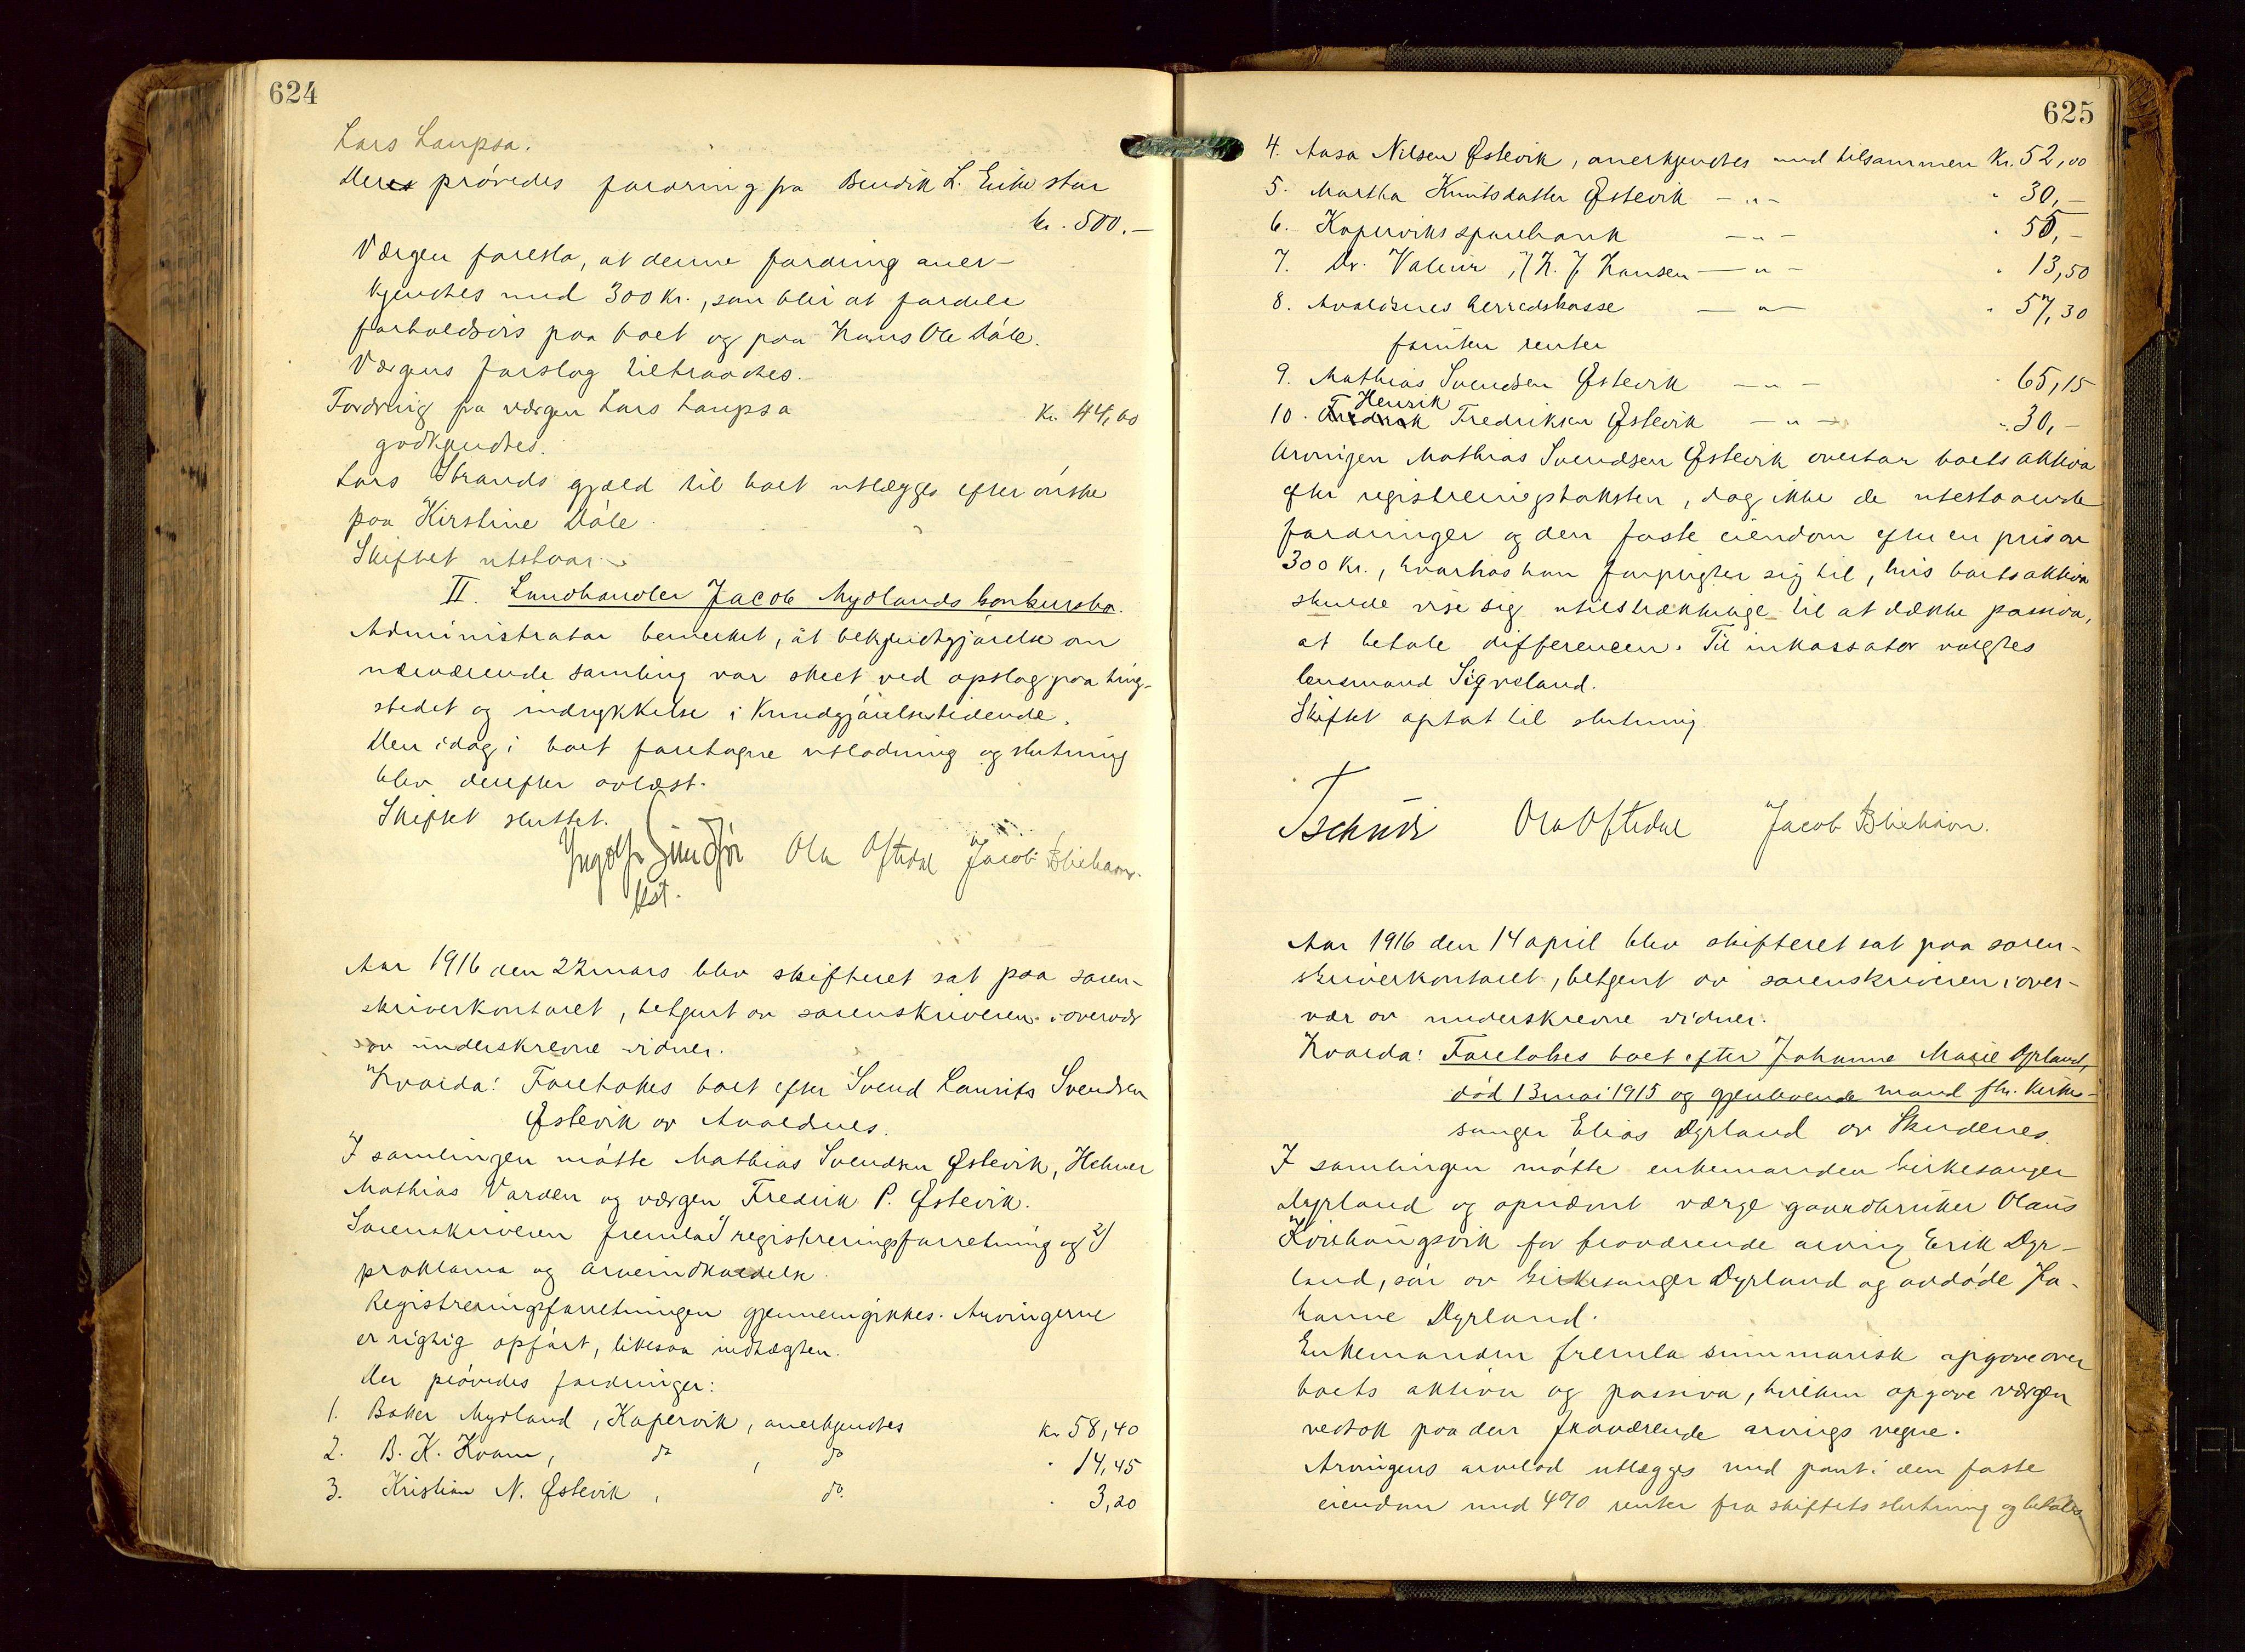 624
Lars Laupsa.
Der prøvedes fordring fra Bendik L. Eikestøl
kr. 500.-
Værgen foreslo, at denne fordring aner-
kjendtes med 300 kr., som blir at fordele
forholdsvis paa boet og paa Hans Ole Dále.
Værgens forslag tiltraadtes.
Fordring fra værgen Lars Laupsa kr. 44,60
godkjendtes.
Lars Strands gjæld til boet utlægges efter ønske
paa Kirstine Dále.
Skiftet utstaar.
II. Landhandler Jacob Mydlands konkursbo.
Administrator bemerket, at bekjendtgjørelse om
nærværende samling var skeet ved opslag paa ting-
stedet og indrykkelse i Kundgjørelsestidende.
Den idag i boet foretagne utlodning og slutning
blev derefter avlæst.
Skiftet sluttet.
Ingolf Sundfør Ola Oftedal Jacob Bliehavn.
kst.
Aar 1916 den 22 mars blev skifteret sat paa soren-
skriverkontoret, betjent av sorenskriveren i overvær
av underskrevne vidner.
Hvorda: Foretokes boet efter Svend Laurits Svendsen
Østevik av Avaldsnes.
I samlingen møtte Mathias Svendsen Østevik,
Mathias Varden og værgen Fredrik P. Østevik.
Sorenskriveren fremla 1) registreringsforretning og 2)
proklama og arveindkaldelse.
Registreringsforretningen gjennemgikkes. Arvingerne
er rigtig opført, likesaa indtægten.
Der prøvedes fordringer:
1. Baker Mydland, Kopervik, anerkjendtes kr. 58,40
2. B. K. Kvam, do , do " 14,45
3. Kristian N. Østevik, do. " 3,20
625
4. Aasa Nilsen Østevik, anerkjendtes med tilsammen kr. 52,00
5. Martha Knutsdatter Østevik -"- " 30,-
6. Koperviks sparebank -"- " 55,-
7. Dr. Valeur, / H. J. Hansen -"- " 13,50
8. Avaldsnes herredskasse -"- " 57,30
foruten renter
9. Mathias Svendsen Østevik -"- " 65,15
10. Fredrik Henrik Fredriksen Østevik -"- " 30,-
Arvingen Mathias Svendsen Østevik overtar boets aktiva
efter registreringstaksten, dog ikke de utestaaende
fordringer og den faste eiendom efter en pris av
300 kr., hvorhos han forpligter sig til, hvis boets aktiva
skulde vise sig utilstrækkelige til at dække passiva,
at betale differencen. Til inkassator valgtes
lensmand Sigveland.
Skiftet optat til slutning.
Tschudi Ola Oftedal Jacob Bliehavn.
Aar 1916 den 14 april blev skifteret sat paa soren-
skriverkontoret, betjent av sorenskriveren i over-
vær av underskrevne vidner.
Hvorda: Foretokes boet efter Johanne Marie Dyrland,
død 13 mai 1915 og gjenlevende mand fhv. kirke-
sanger Elias Dyrland av Skudenes.
I samlingen møtte enkemanden kirkesanger
Dyrland og opnævnt værge gaardbruker Olaus
Kvilhaugsvik for fraværende arving Erik Dyr-
land, søn av kirkesanger Dyrland og avdøde Jo-
hanne Dyrland.
Enkemanden fremla summarisk opgave over
boets aktiva og passiva, hvilken opgave værgen
vedtok paa den fraværende arvings vegne.
Arvingens arvelod utlægges med pant i den faste
eiendom med 4% renter fra skiftets slutning og betales